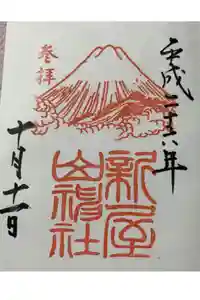 平成二十六年
奉拝
新屋
山神社
十月十一日